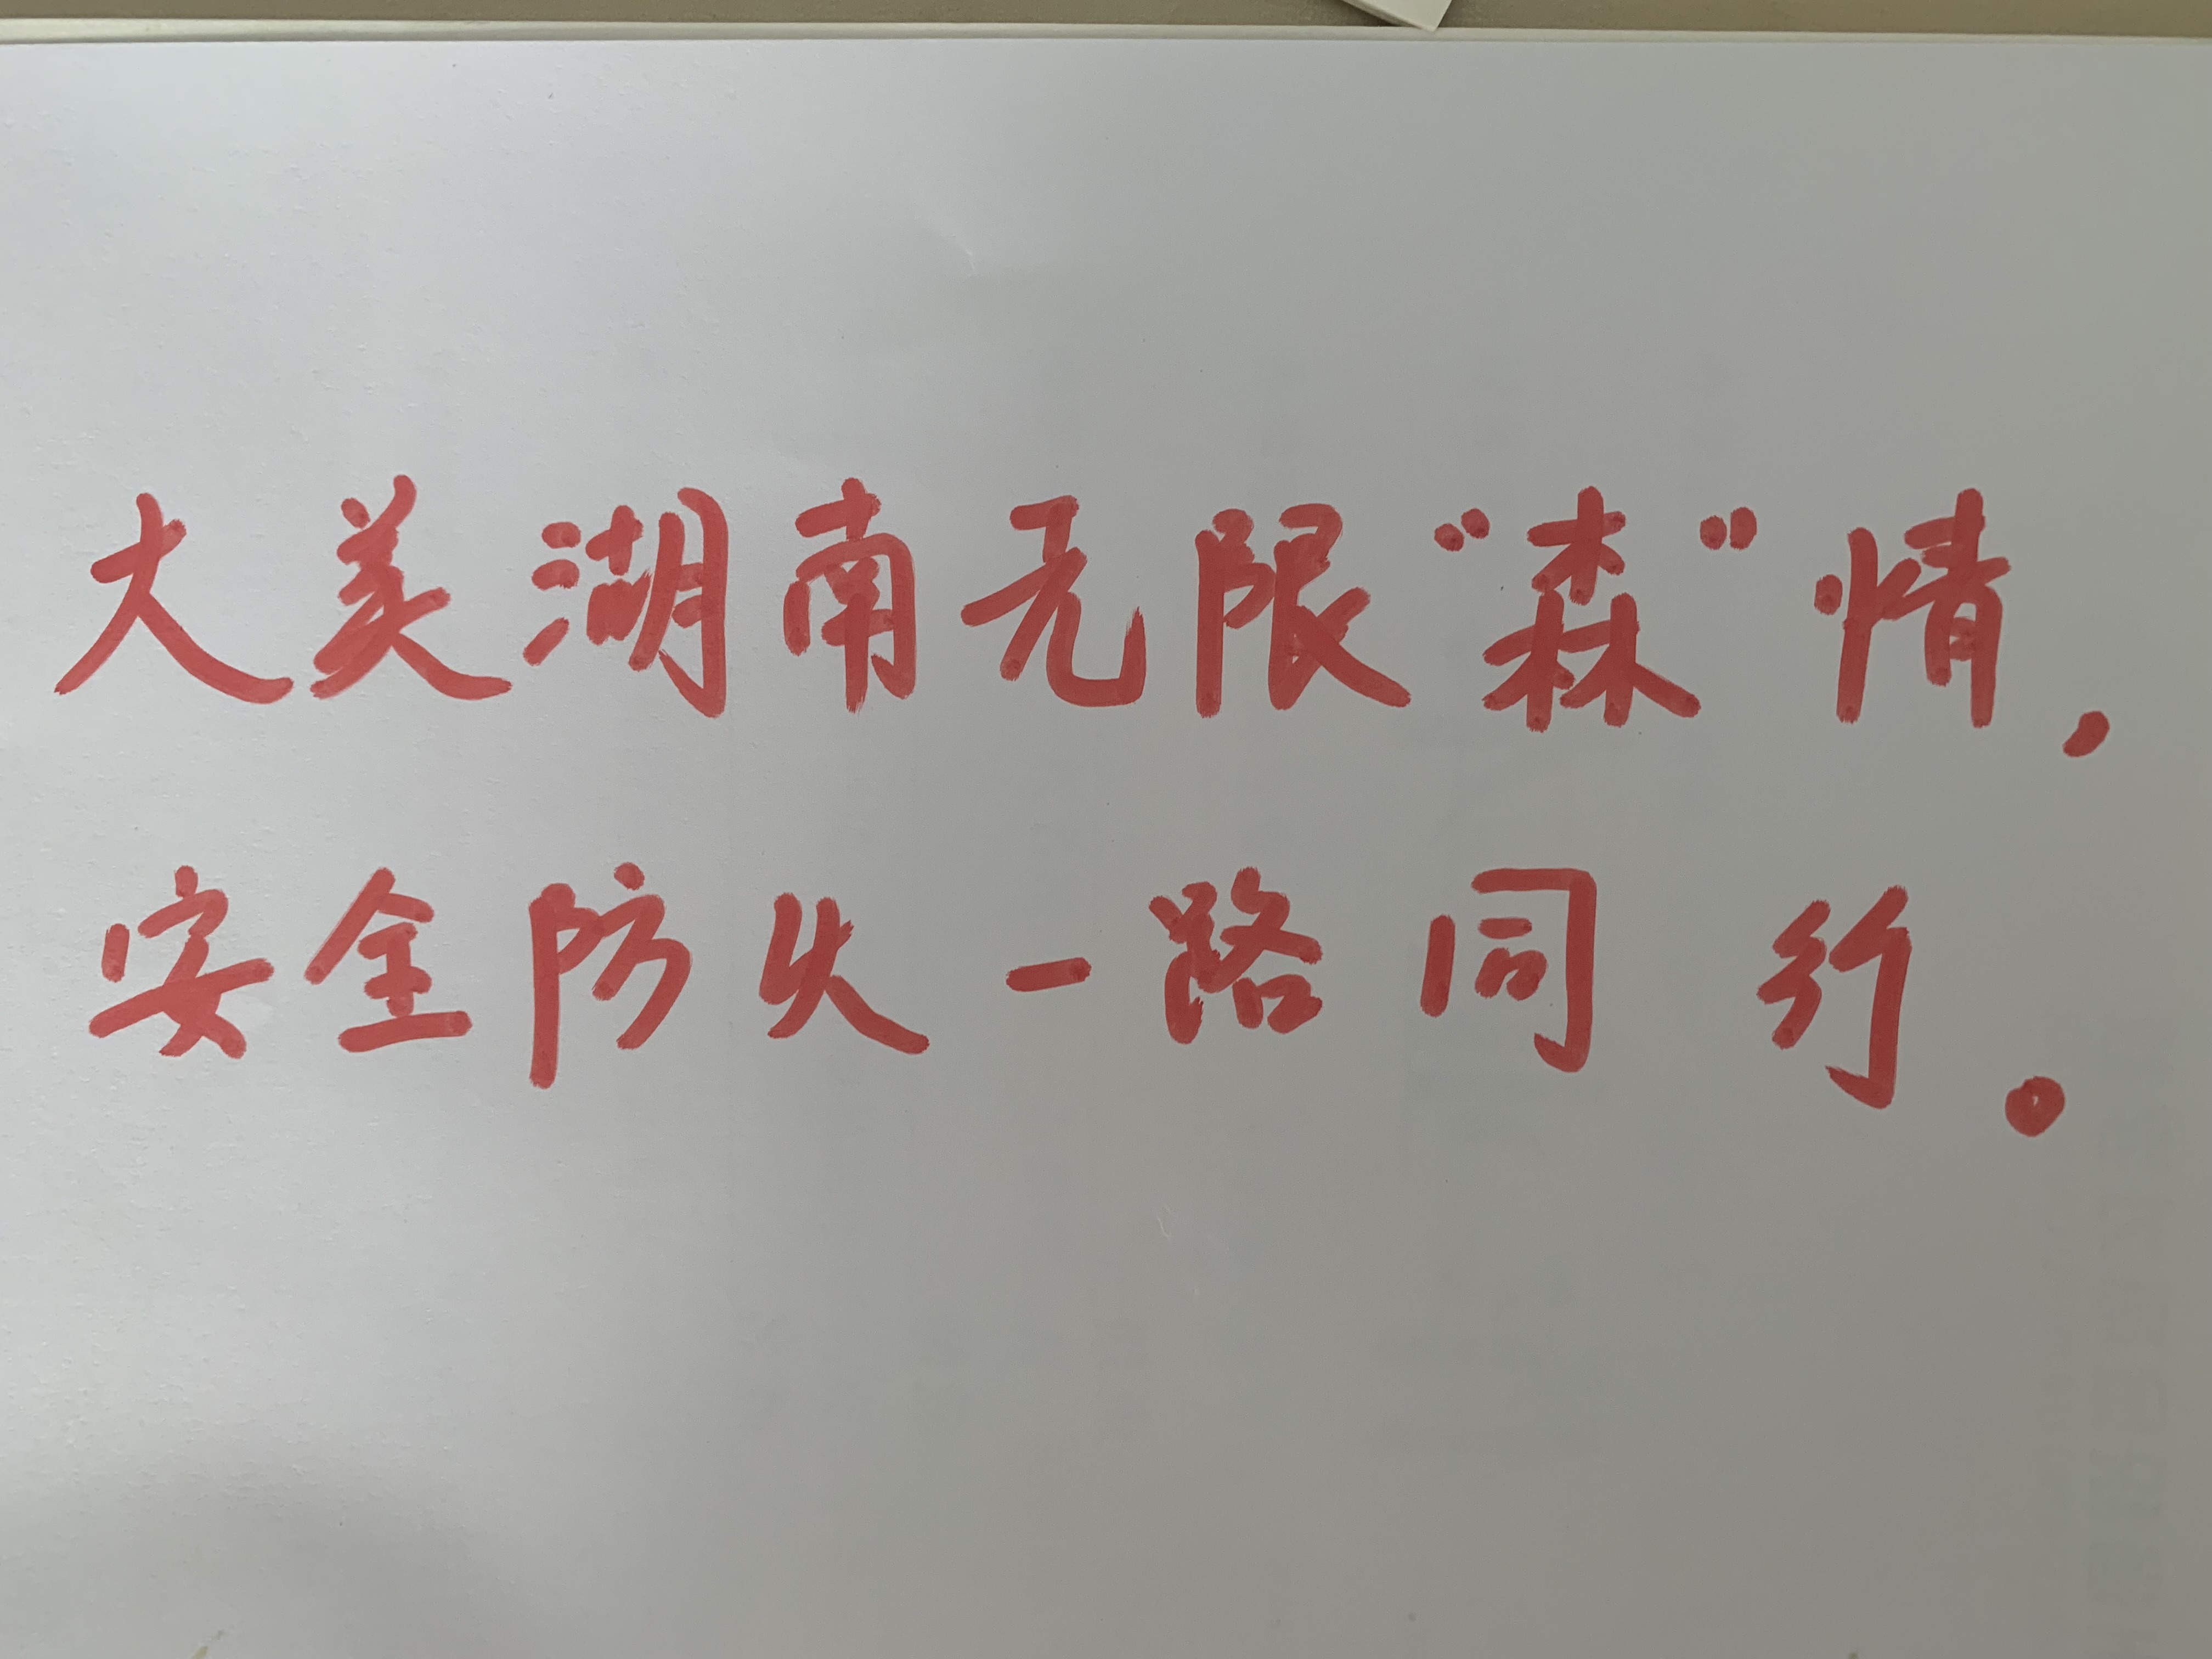 大美湖南无限“森”情，
安全防火一路同行。